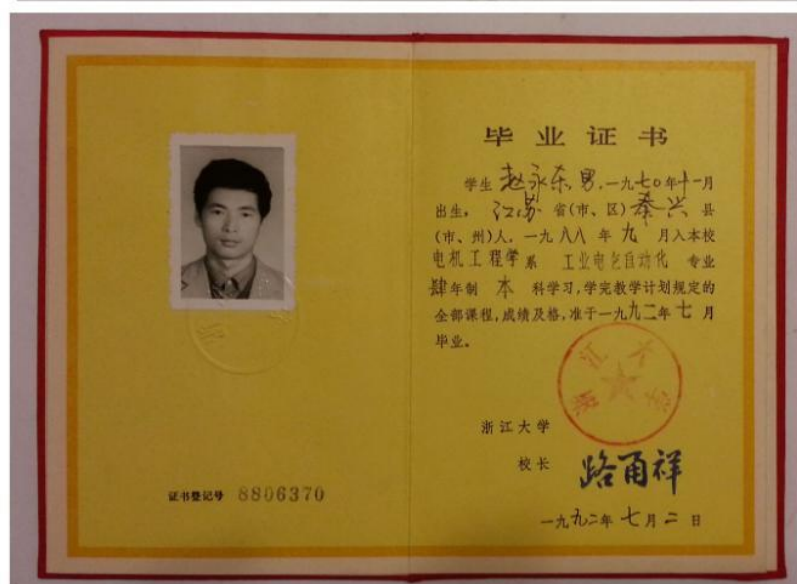 证书登记号 8806370
毕业证书
学生 赵永东 男,一九七〇年十一月
出生, 江苏 省(市、区) 泰兴 县
(市、州)人,一九八八年 九 月入本校
电机工程学系 工业电气自动化 专业
肆年制 本 科学习,学完教学计划规定的
全部课程,成绩及格,准于一九九二年七月
毕业。
浙江大学
浙江大学
校长 路甬祥
一九九二年七月二日